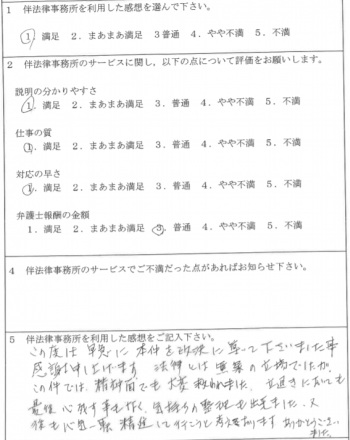 1 伴法律事務所を利用した感想を選んで下さい。
1．満足 2．まあまあ満足 3 普通 4．やや不満 5．不満
2 伴法律事務所のサービスに関し，以下の点について評価をお願いします。
説明の分かりやすさ
1．満足 2．まあまあ満足 3．普通 4．やや不満 5．不満
仕事の質
1．満足 2．まあまあ満足 3．普通 4．やや不満 5．不満
対応の早さ
1．満足 2．まあまあ満足 3．普通 4．やや不満 5．不満
弁護士報酬の金額
1．満足 2．まあまあ満足 3．普通 4．やや不満 5．不満
4 伴法律事務所のサービスでご不満だった点があればお知らせ下さい。
5 伴法律事務所を利用した感想をご記入下さい。
この度は早急に本件を解決に導いて下さいました事
感謝申し上げます 法律とは
この件では、精神面でも大変救われました。
心残す事も無く、気持ちの整理も出来ました。又
心 精進していこうと考えております ありがとうござい
ました。